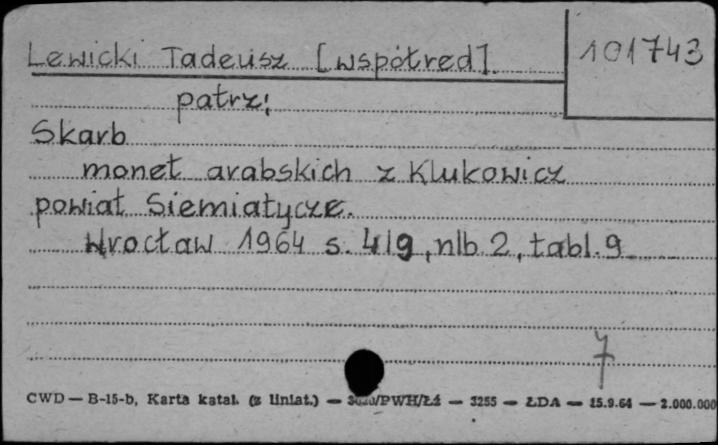 Lewicki Tadeusz [współred]
101743
patrz:
Skarb
monet arabskich z Klukowicz
powiat Siemiatycze.
Wrocław 1964 s. 4l9, nlb 2, tabl. 9
7
CWD — B-15-b, Karta katal. (z liniat.) — /PWH/Łź — 3255 — ŁDA — 15.9.64 — 2.000.000